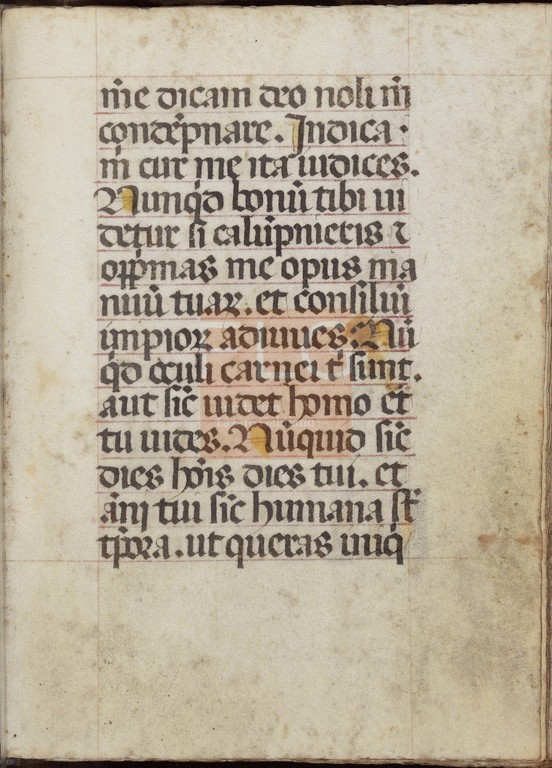 m̄e dicam deo noli m̄
condēpnare. Indica
m̄ cur me ita iudices.
Nunqd bonū tibi ui
detur si calūpnieris ⁊
opp̄mas me opus ma
nuū tuaꝝ. et consiliū
impioꝝ adiuues. Nū
qd oculi carnei t̄ sunt.
aut sic̄ uidet homo et
tu uides. Nūquid sic̄
dies hōis dies tui. et
āni tui sic̄ humana st̄
tp̄ora. ut queras iniq